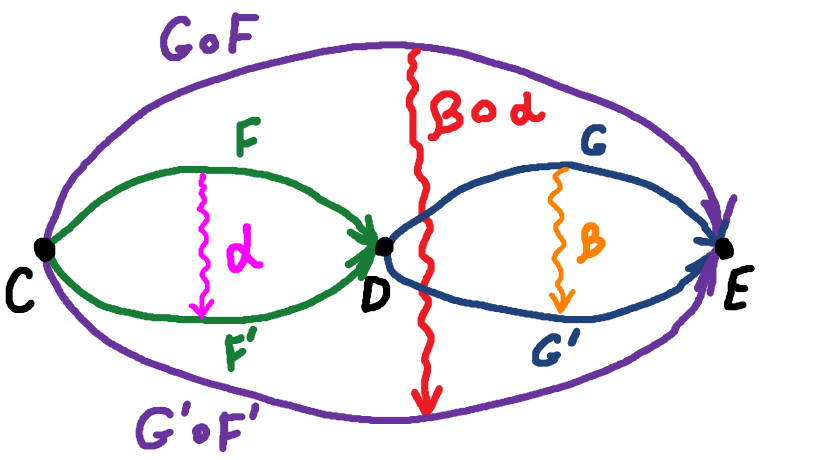 G∘F
β∘α
F
G
α
β
C
D
E
F'
G'
G'∘F'